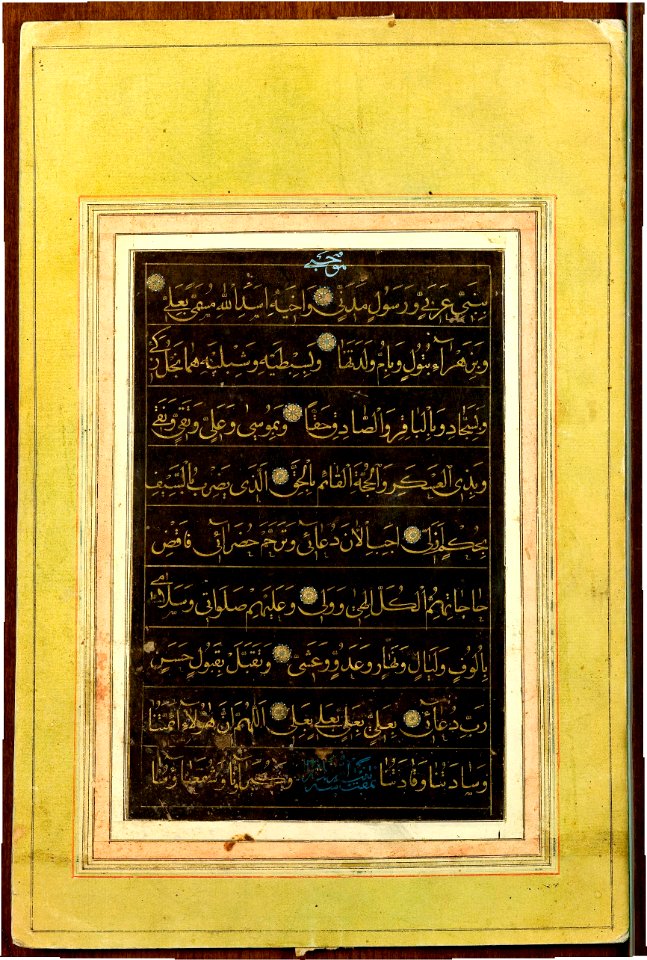 بنبي عربي ورسول مدني واخيه اسد الله مسمى بعلي
وبزهرآء بتول وبام ولدتها وبسبطيه وشبليه هما نجل زكي
وبسجاد وبالباقر والصادق حقا وبموسى وعلي وتقي ونقي
وبذي العسكر والحجة القائم بالحق الذي يضرب بالسيف
بحكم ازلي اجب الان دعائي وترحم حضرائي فاقض
حاجاتهم الكل الهي وولي وعليهم صلواتي وسلامي
بالوف وليال ونهار وغدو وعشي وتقبل بقبول حسن
رب دعائي بعلي بعلي بعلي بعلي اللهم ان هؤلاء ائمتنا
وسادتنا وقادتنا وكبرآؤنا وشفعاؤنا